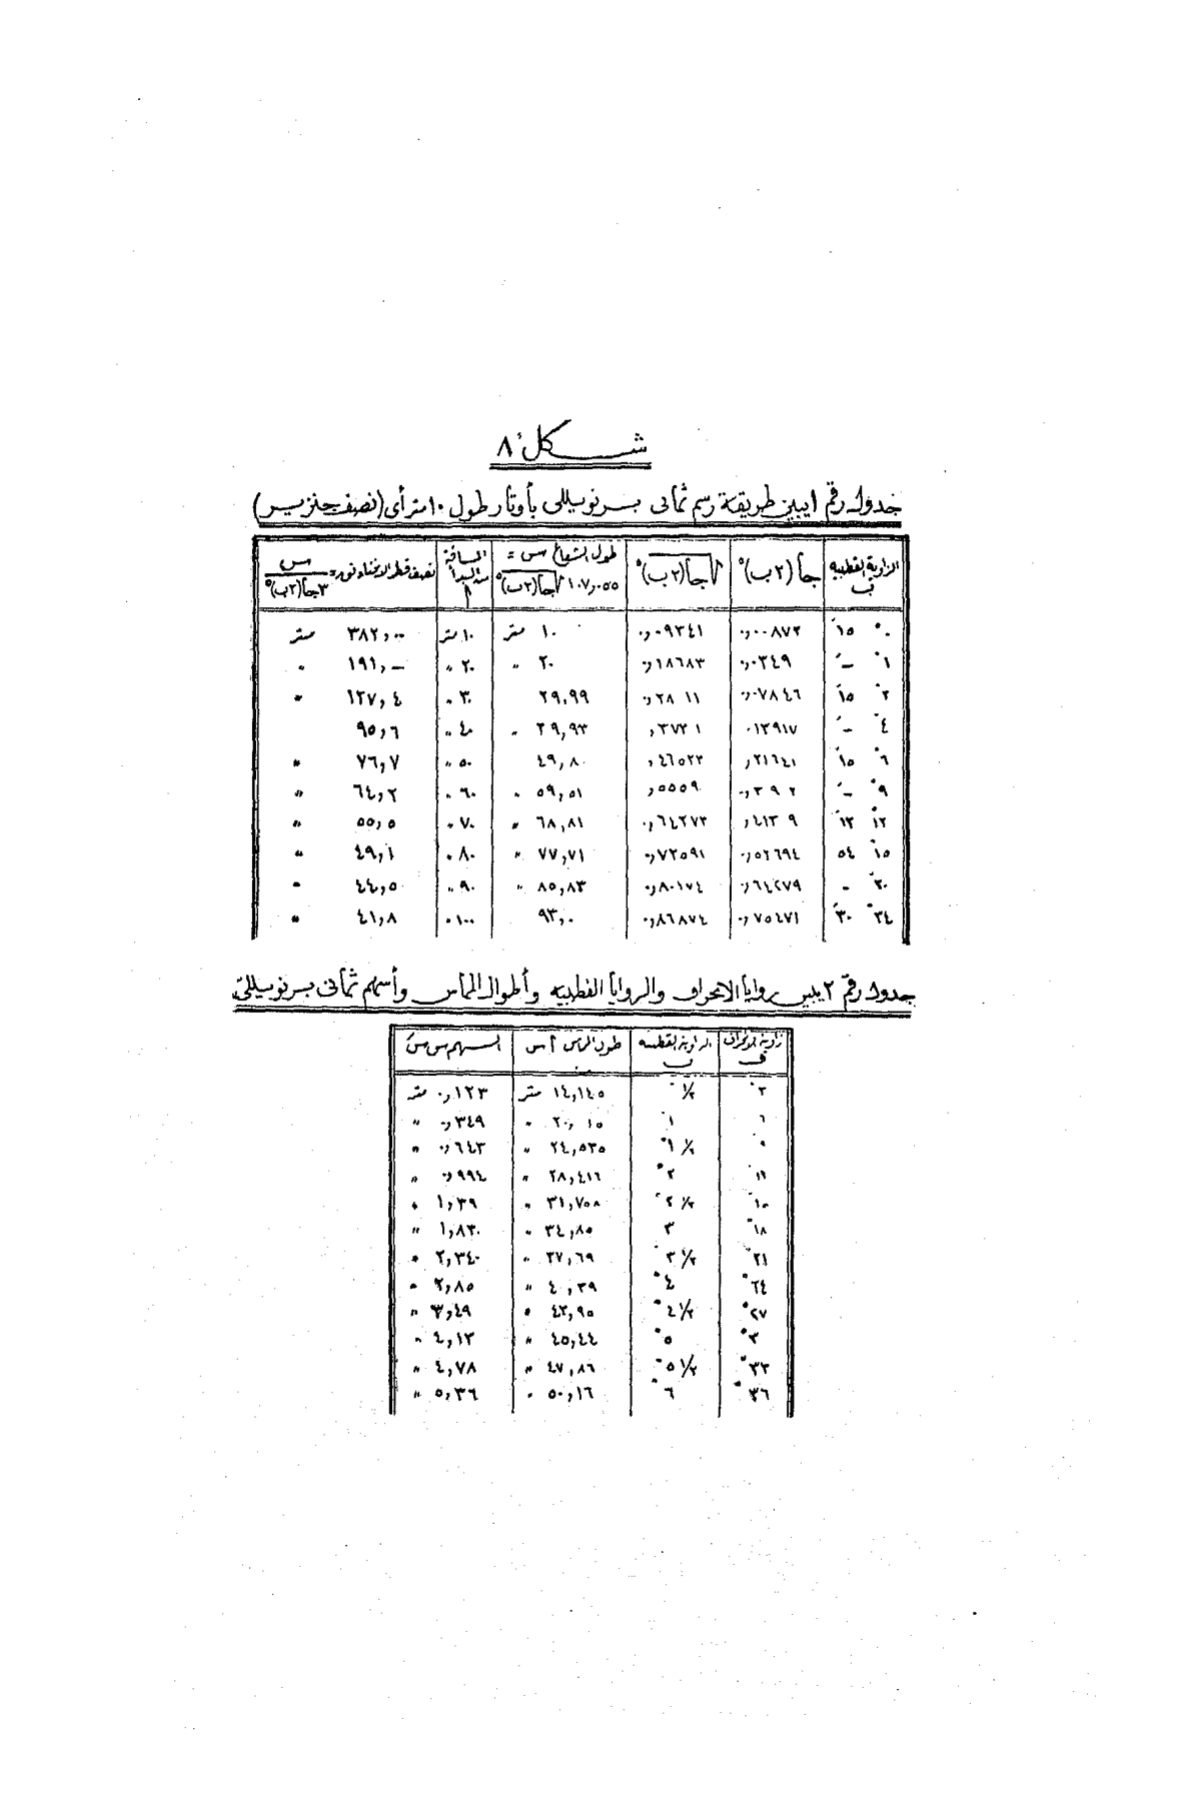 شكل ٨
جدول رقم ١ يبين طريقة رسم ثمانى برنويللى بأوتار طول ١٠ متر أى (نصف جنزير)
الزاوية القطبية ب | جا (٢ب)° | √جا(٢ب)° | طول الشعاع س = ١٠٧,٠٥٥ √جا(٢ب)° | المسافة من المبدأ م | نصف قطر الانحناء نور = س / ٣جا(٢ب)°
٠° ١٥َ | ٠,٠٠٨٧٢ | ٠,٠٩٣٤١ | ١٠ متر | ١٠ متر | ٣٨٢,٠٠ متر
١° — | ٠,٠٣٤٩ | ٠,١٨٦٨٣ | ٢٠ " | ٢٠ " | ١٩١,— "
٢° ١٥َ | ٠,٠٧٨٤٦ | ٠,٢٨٠١١ | ٢٩,٩٩ | ٣٠ " | ١٢٧,٤ "
٤° — | ٠١٣٩١٧ | ,٣٧٣٠١ | ٣٩,٩٣ " | ٤٠ " | ٩٥,٦
٦° ١٥َ | ,٢١٦٤١ | ,٤٦٥٢٣ | ٤٩,٨٠ | ٥٠ " | ٧٦,٧ "
٩° — | ٠,٣٠٩٢ | ,٥٥٥٩٠ | ٥٩,٥١ " | ٦٠ " | ٦٤,٢ "
١٢° ١٣َ | ,٤١٣٠٩ | ٠,٦٤٢٧٣ | ٦٨,٨١ " | ٧٠ " | ٥٥,٥ "
١٥° ٥٤ | ٠,٥٢٦٩٤ | ٠,٧٢٥٩١ | ٧٧,٧١ " | ٨٠ " | ٤٩,١ "
٢٠° - | ٠,٦٤٢٧٩ | ٠,٨٠١٧٤ | ٨٥,٨٣ " | ٩٠ " | ٤٤,٥ "
٢٤° ٣٠َ | ٠,٧٥٤٧١ | ٠,٨٦٨٧٤ | ٩٣,٠ | ١٠٠ " | ٤١,٨ "
جدول رقم ٢ يبين زوايا الانحراف والزوايا القطبية وأطوال المماس وأسهم ثمانى برنويللى
زاوية الانحراف ف | الزاوية القطبية ب | طول المماس أ س | السهم س س
٣° | ١/٢° | ١٤,١٤٥ متر | ٠,١٢٣ متر
٦ | ١° | ٢٠,٠١٥ " | ٠,٣٤٩ "
٩ | ١ ١/٢° | ٢٤,٥٣٥ " | ٠,٦٤٣ "
١٢° | ٢° | ٢٨,٤١٦ " | ٠,٩٩٤ "
١٥° | ٢ ١/٢° | ٣١,٧٥٨ " | ١,٣٩ "
١٨° | ٣ | ٣٤,٨٥ " | ١,٨٣٠ "
٢١° | ٣ ١/٢° | ٣٧,٦٩ " | ٢,٣٤٠ "
٢٤° | ٤° | ٤٠,٣٩ " | ٢,٨٥ "
٢٧° | ٤ ١/٢° | ٤٢,٩٥ " | ٣,٤٩ "
٣٠° | ٥° | ٤٥,٤٤ " | ٤,١٣ "
٣٣° | ٥ ١/٢° | ٤٧,٨٦ " | ٤,٧٨ "
٣٦° | ٦° | ٥٠,١٦ " | ٥,٣٦ "